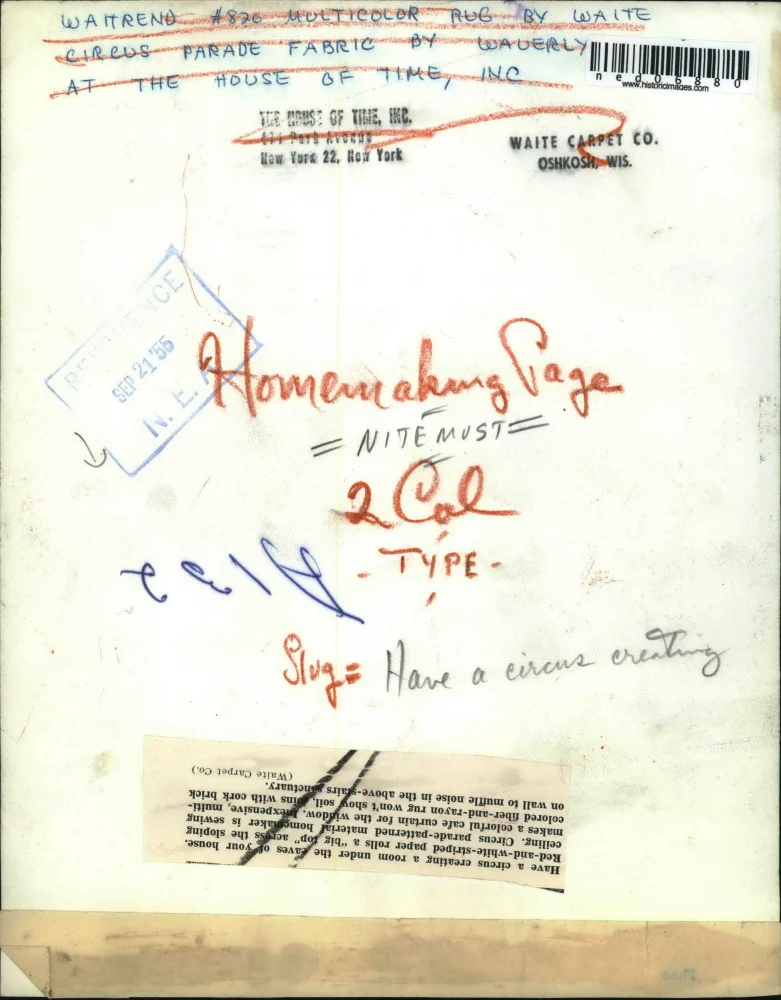 WAITREND #820 MULTICOLOR RUG BY WAITE
CIRCUS PARADE FABRIC BY WAVERLY
AT THE HOUSE OF TIME, INC
ned06880
www.historicimages.com
THE HOUSE OF TIME, INC.
Park Avenue
New York 22, New York
WAITE CARPET CO.
OSHKOSH, WIS.
REFERENCE
SEP 21 '55
N. E. A.
Homemaking Page
= NITE MUST =
2 Col
- TYPE -
Slug = Have a circus creating
Have a circus creating a room under the eaves of your house.
Red-and-white-striped paper rolls a "big top" across the sloping
ceiling. Circus parade-patterned material homemaker is sewing
makes a colorful cafe curtain for the window. Inexpensive, multi-
colored fiber-and-rayon rug won't show soil, joins with cork brick
on wall to muffle noise in the above-stairs sanctuary.
(Waite Carpet Co.)